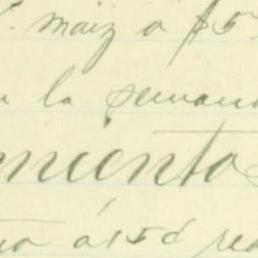 maiz a $5
la semana
mientos
á 15 ¢